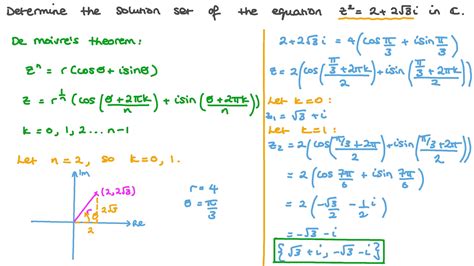 Determine the solution set of the equation z² = 2 + 2√3 i in ℂ.
De moivre's theorem:
zⁿ = r(cosθ + isinθ)
z = r^(1/n) (cos(θ + 2πk / n) + isin(θ + 2πk / n))
k = 0, 1, 2 ... n-1
Let n = 2, so k = 0, 1.
Im
(2, 2√3)
r
2√3
θ
2
Re
r = 4
θ = π/3
2 + 2√3 i = 4(cos π/3 + isin π/3)
z = 2(cos((π/3 + 2πk)/2) + isin((π/3 + 2πk)/2))
Let k = 0:
z₁ = √3 + i
Let k = 1:
z₂ = 2(cos((π/3 + 2π)/2) + isin((π/3 + 2π)/2))
= 2(cos 7π/6 + isin 7π/6)
= 2(-√3/2 - 1/2 i)
= -√3 - i
{√3 + i, -√3 - i}